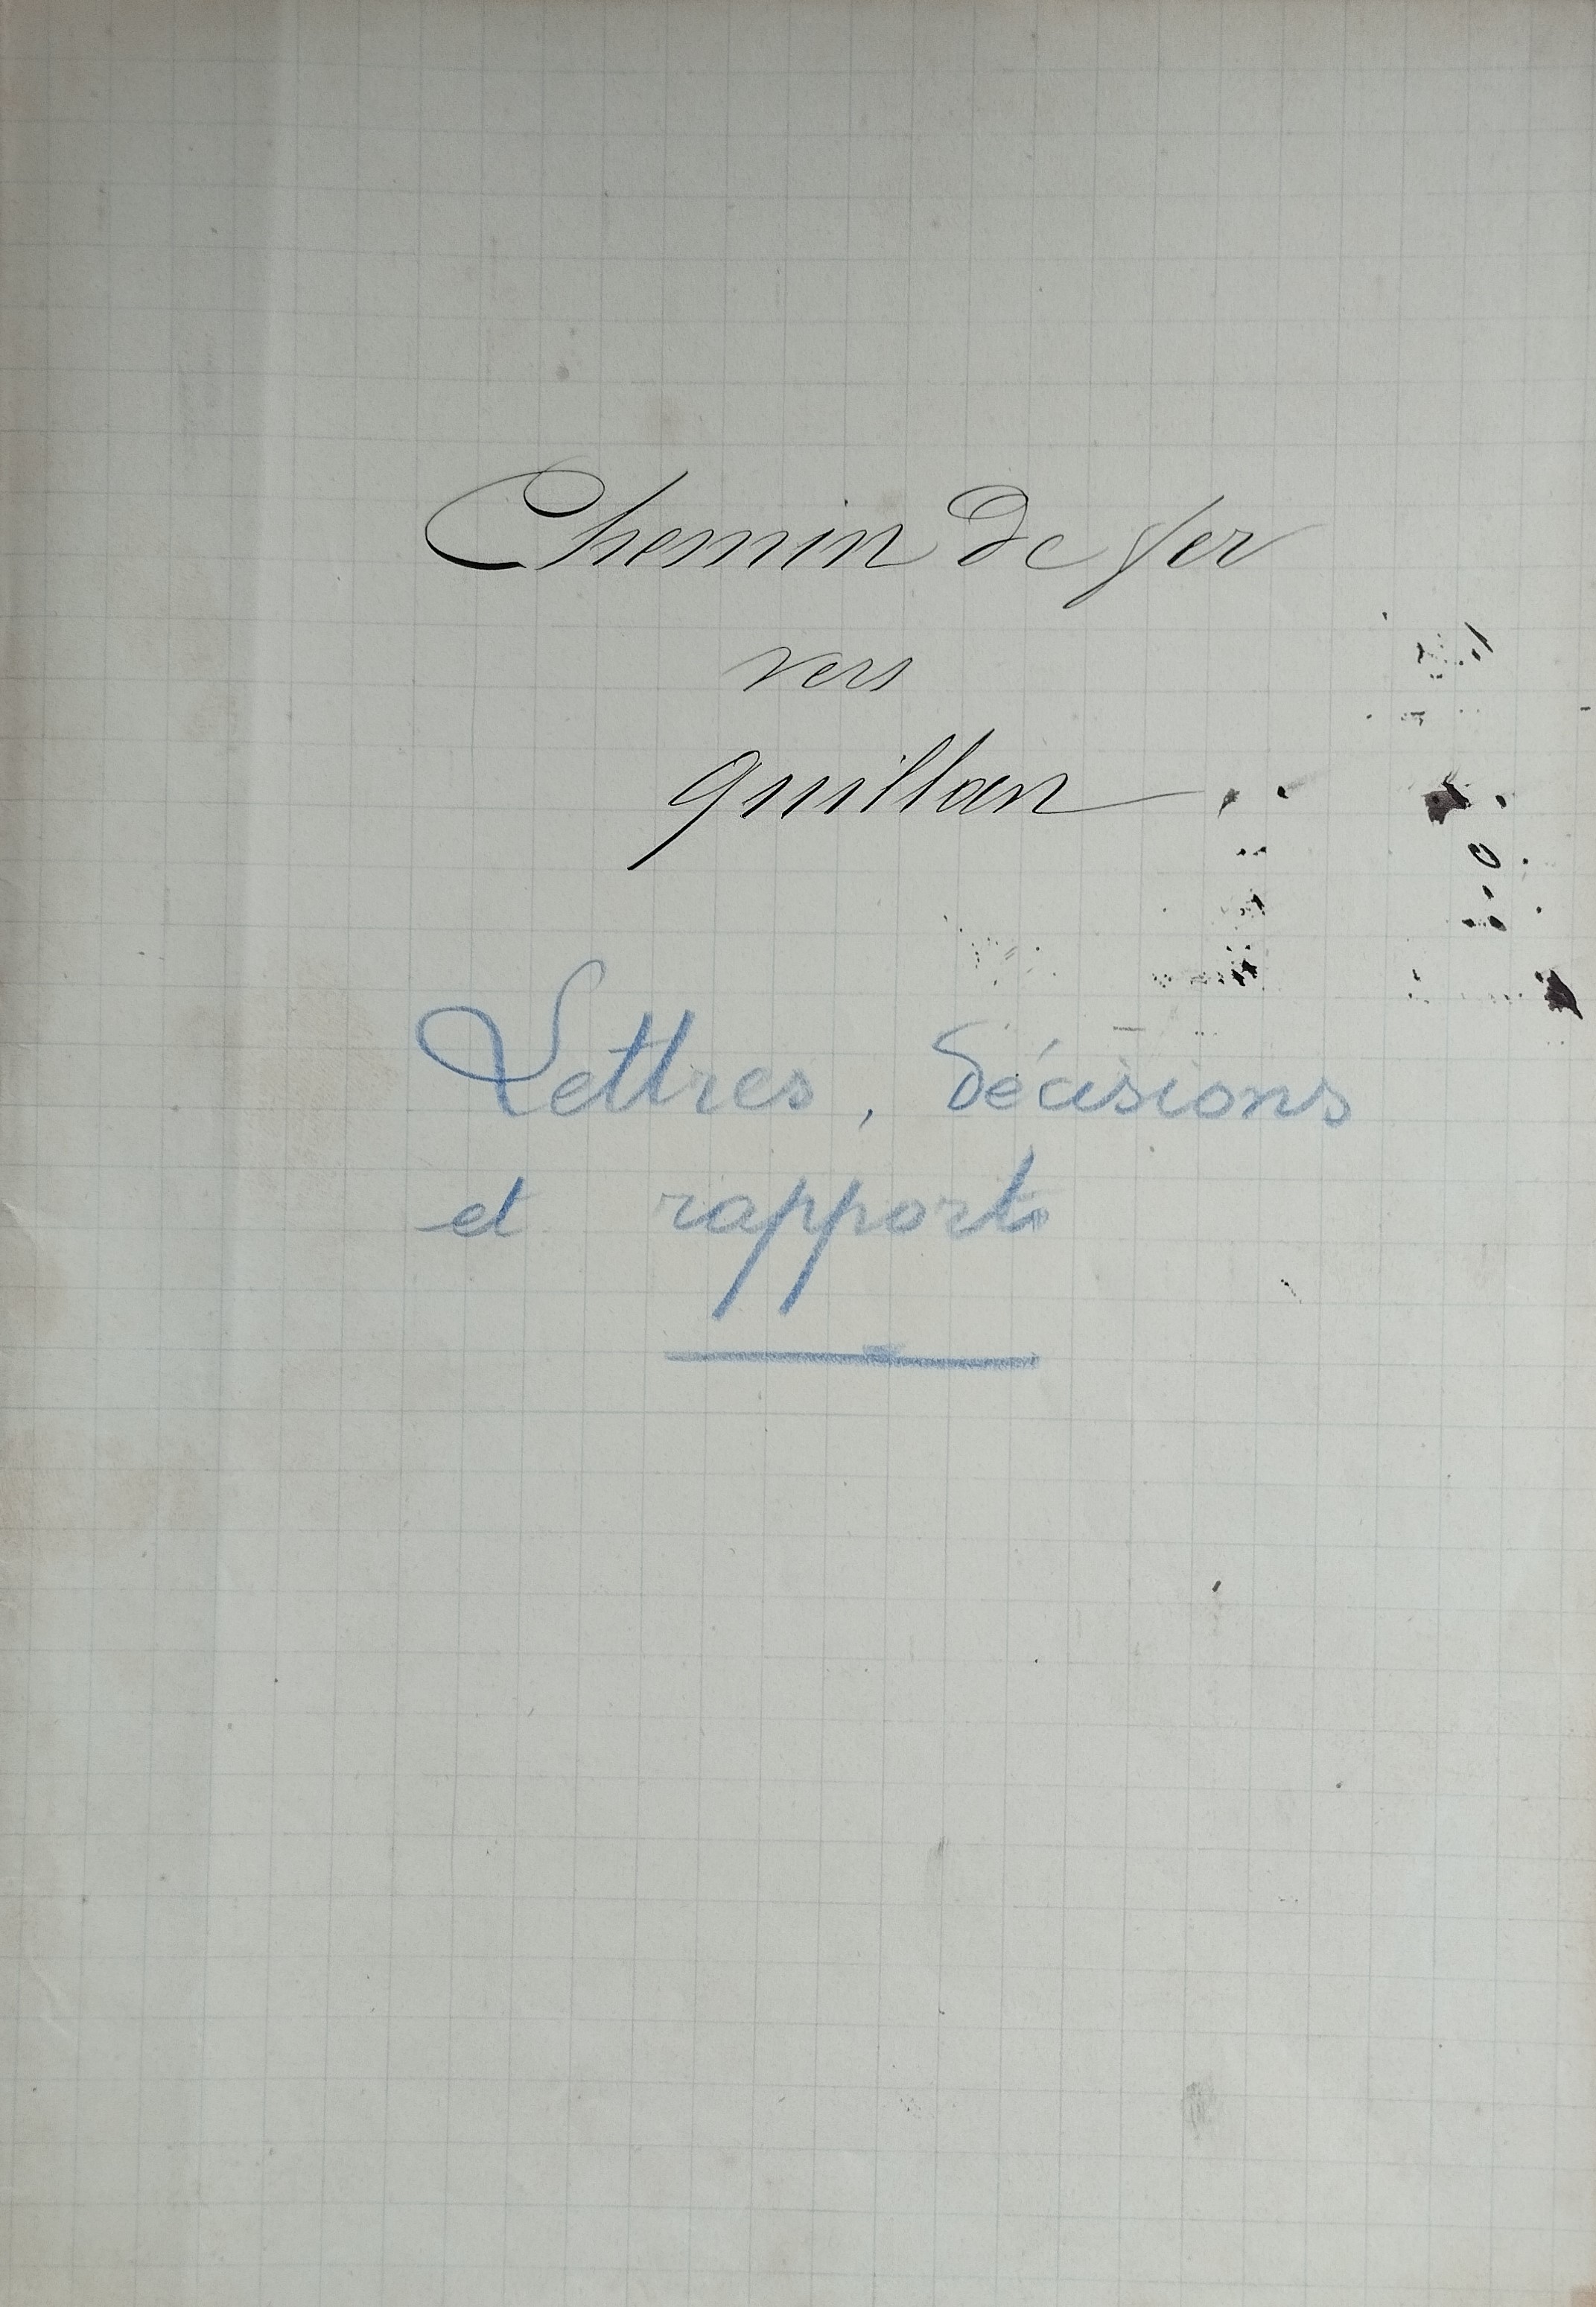 Chemin de fer
vers
quillan
Lettres, décisions
et rapports